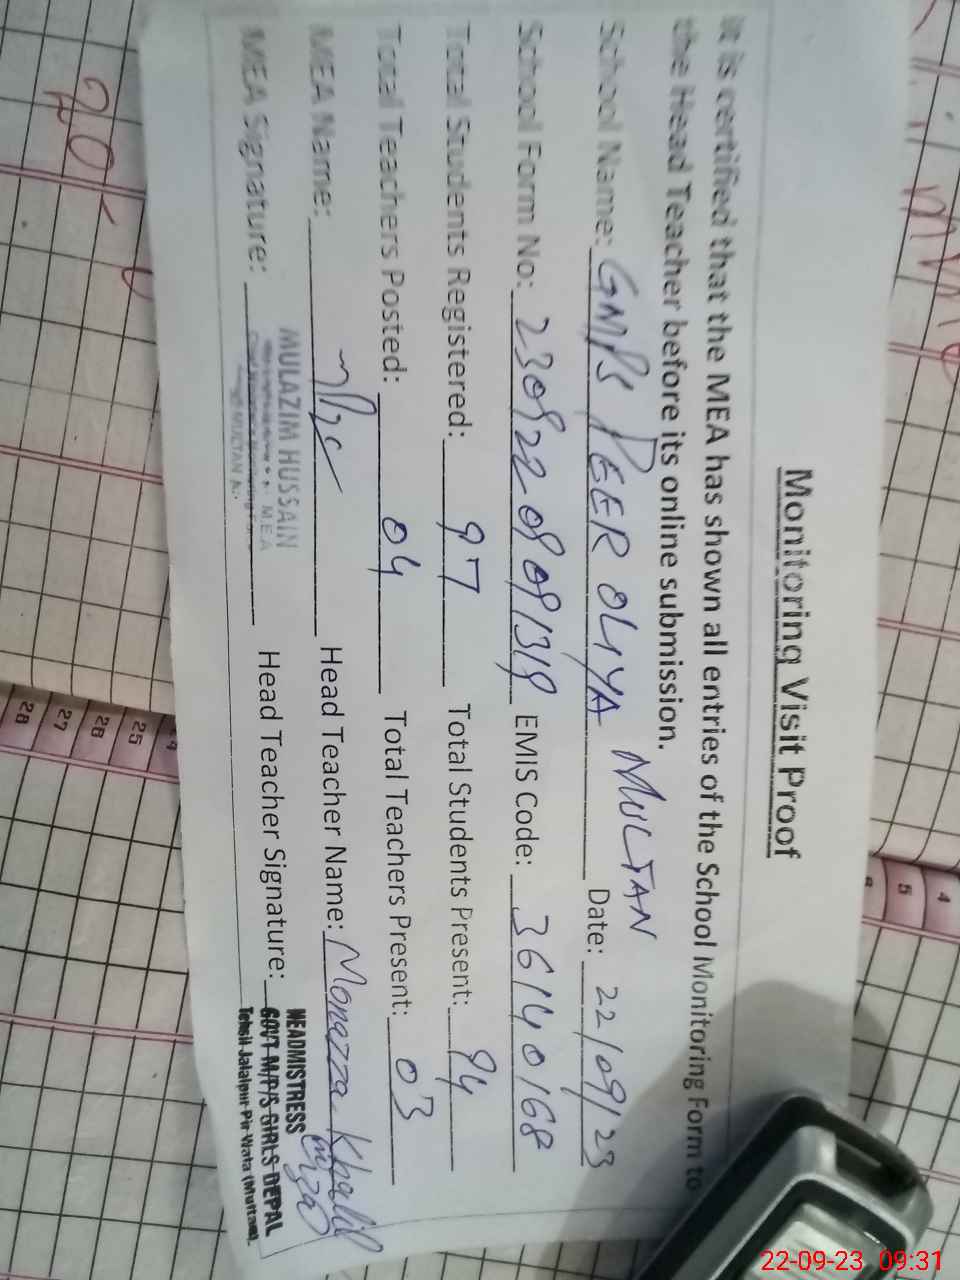 Monitoring Visit Proof
It is certified that the MEA has shown all entries of the School Monitoring Form to
the Head Teacher before its online submission.
School Name: GMPS PEER OLIYA MULTAN Date: 22/09/23
School Form No: EMIS Code: 36140168
Total Students Registered: 97 Total Students Present: 94
Total Teachers Posted: 04 Total Teachers Present: 03
MEA Name: Head Teacher Name: Monazza Khalil
MULAZIM HUSSAIN
M.E.A
MULTAN
MEA Signature: Head Teacher Signature:
HEADMISTRESS
GOVT M/P/S GIRLS DEPAL
Tehsil Jalalpur Pir Wala (Multan)
20
25
26
27
28
4
5
22-09-23 09:31